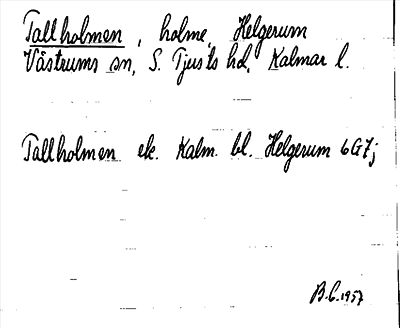 Tallholmen, holme, Helgerum
Västrums sn, S. Tjusts hd, Kalmar l.
Tallholmen ek. Kalm. bl. Helgerum 6G7j
B.C. 1957